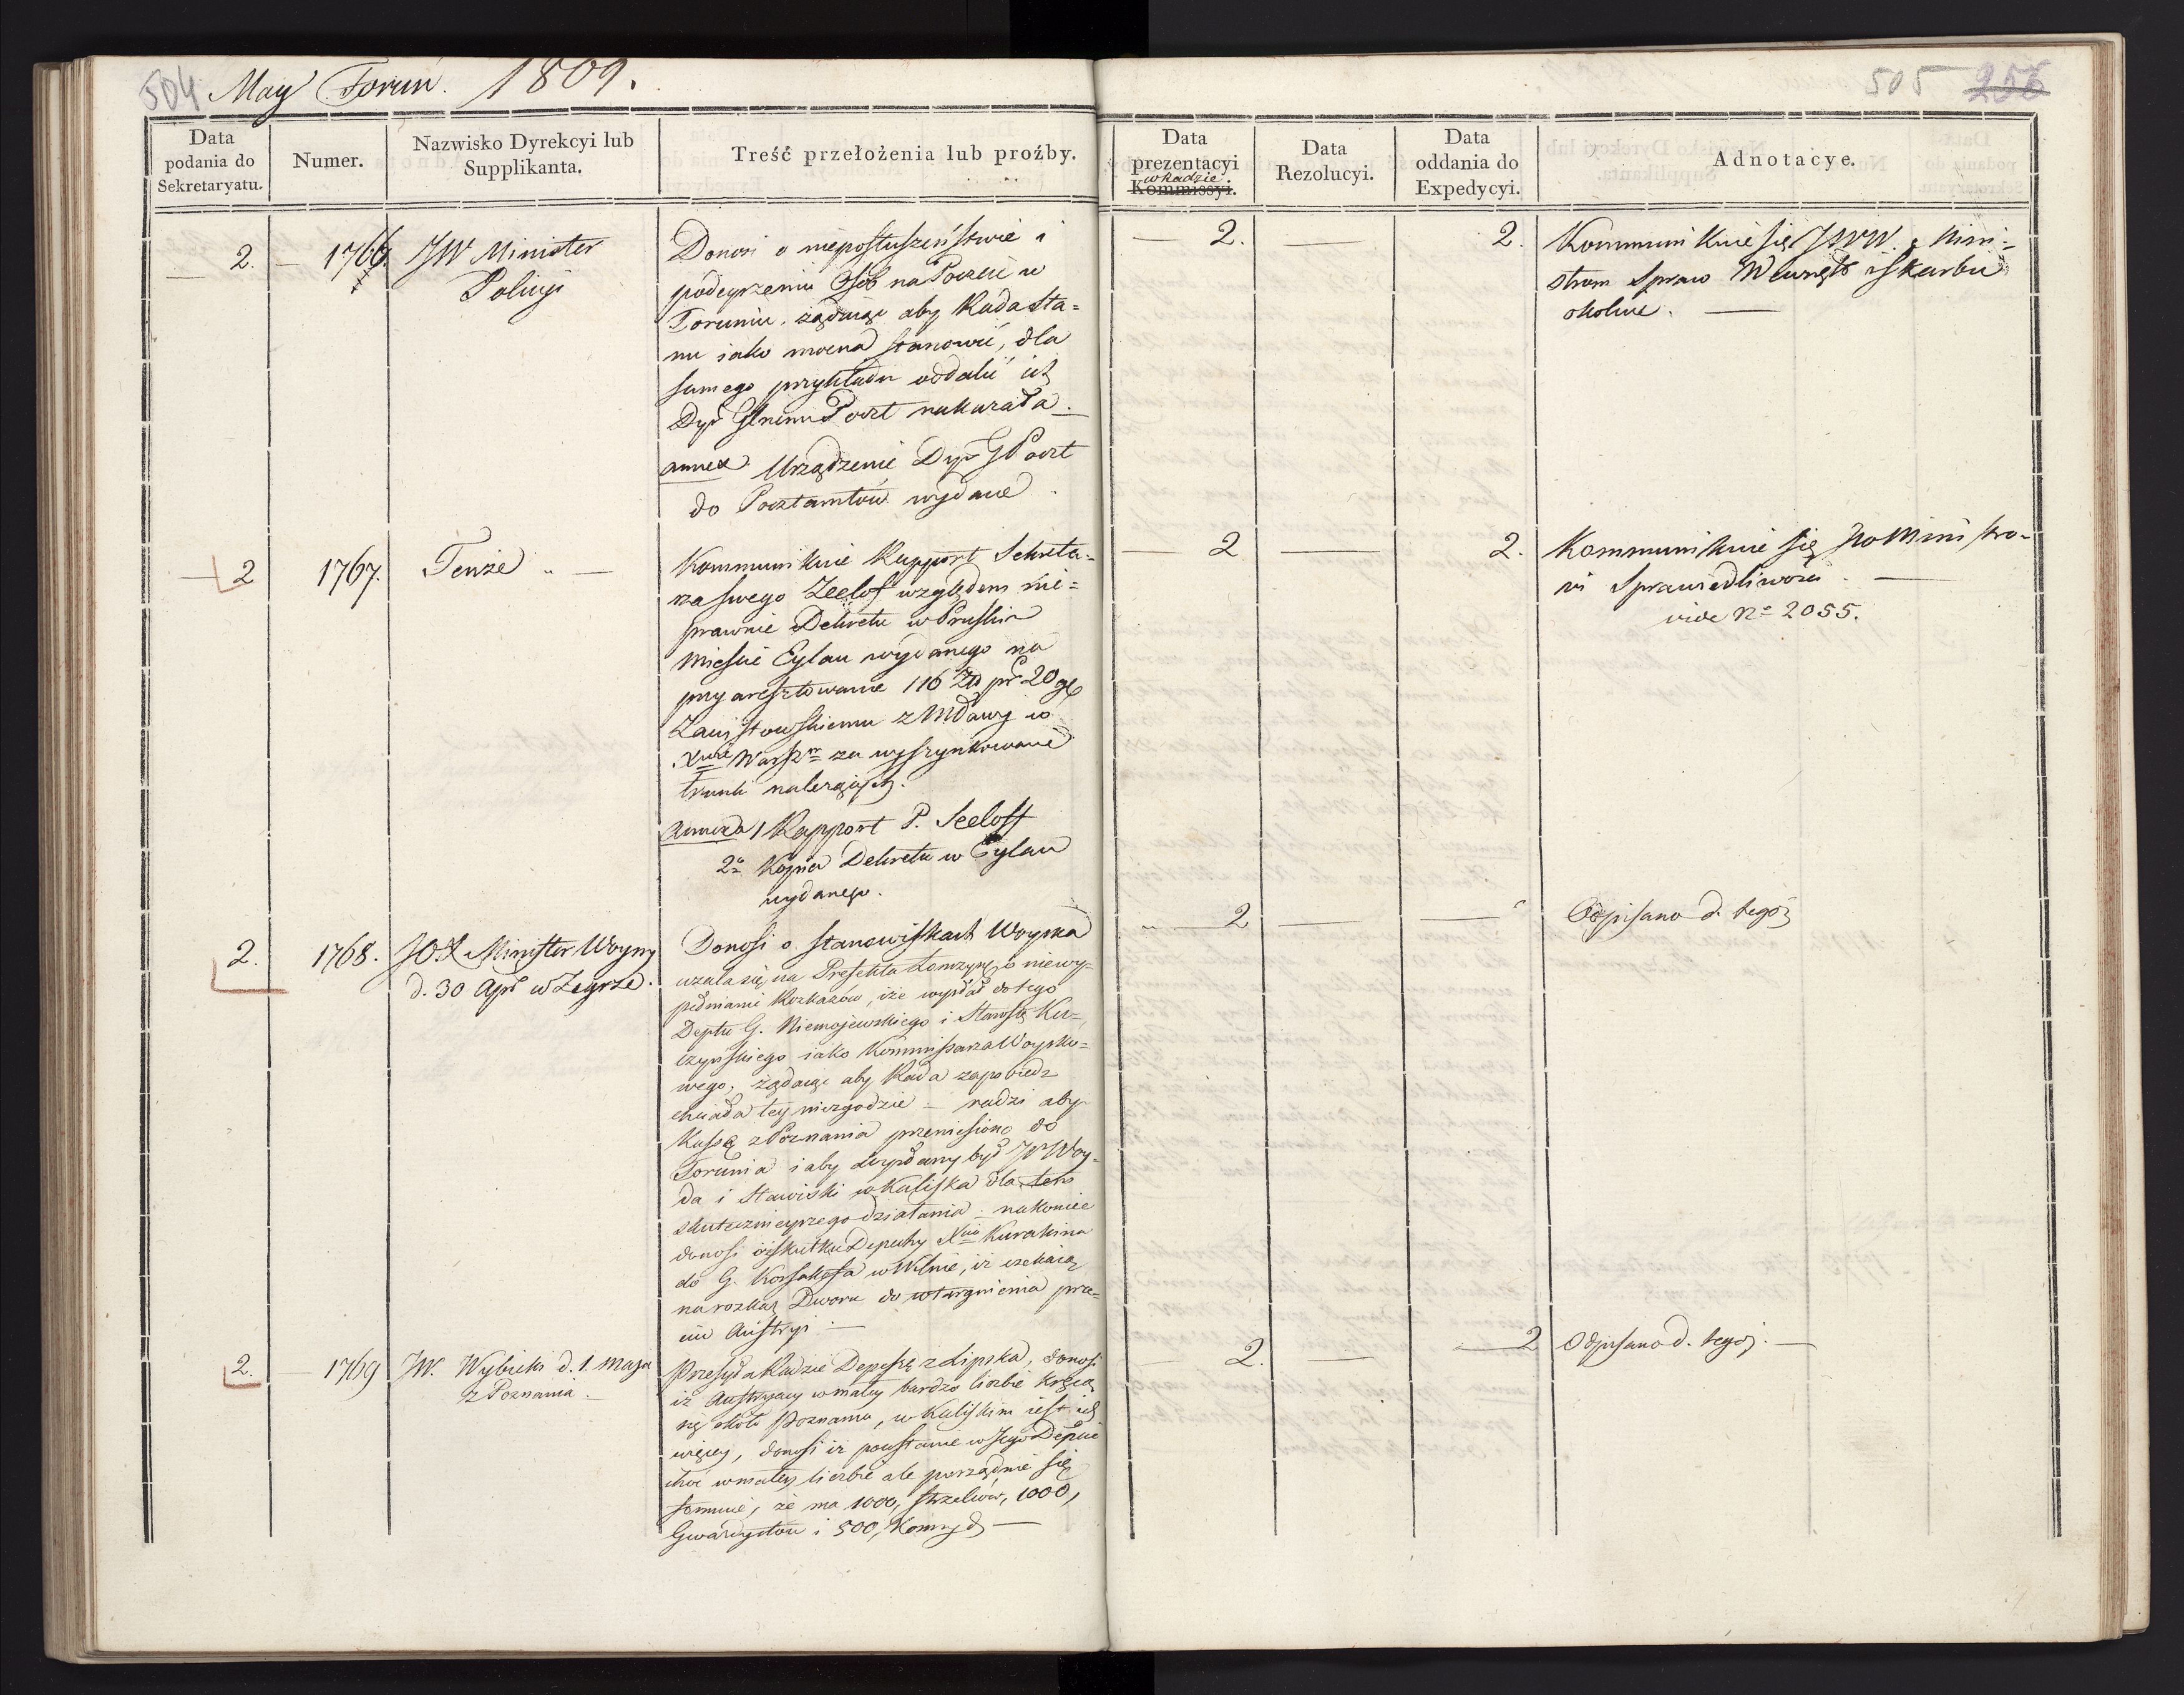 504 May Toruń. 1809.
505 256
Data podania do Sekretaryatu.
Numer.
Nazwisko Dyrekcyi lub Supplikanta.
Treść przełożenia lub proźby.
Data prezentacyi w Radzie Kommissyi.
Data Rezolucyi.
Data oddania do Expedycyi.
Adnotacye.
2. 1766. JW Minister
Policyi
Donosi o nieposłuszeństwie i
podeyrzeniu Osób na Poczcie w
Toruniu, żądaiąc aby Rada Sta=
nu iako mocna stanowić, dla
samego przykładu oddalić ich
Dyr Glnemu Poczt nakazała.
annex. Urządzenie Dyr G Poczt
do Pocztamtów wydane.
2. 2.
Kommunikuie się JWW. Mini=
strom Spraw Wewnętr i Skarbu
okolne.
2 1767. Tenże
Kommunikuie Rapport Sekreta=
rza swego Zeelof względem nie=
prawnie Dekretu w Pruskim
Mieście Eylau wydanego na
przyaresztowanie 116 Tal pr 20 gl
Zawistowskiemu z Mławy w
Xwie Warszm za wyszynkowane
trunki należących.
Annexa 1 Rapport P. Seeloff
2o Kopia Dekretu w Eylau
wydanego.
2 2.
Kommunikuie się JWo Ministro=
wi Sprawiedliwości.
vide No 2055.
2. 1768. JOX Minister Woyny
d. 30 Apr w Zegrze.
Donosi o stanowiskach Woyska
użala się na Prefekta Łomżyńs o niewy=
pełnianie Rozkazów, iże wysłał do tego
Deptu G. Niemojewskiego i Starostę Ku=
czyńskiego iako Kommissarza Woysko=
wego, żądaiąc aby Rada zapobiedz
chciała tey niezgodzie — radzi aby
Kassę z Poznania przeniesiono do
Torunia i aby wysłany był JW Woy=
da i Stawiski w Kaliskie dla tem
skutecznieyszego działania: nakoniec
donosi o skutku Depeszy Xcia Kurakina
do G. Korsakofa w Wilnie, iż czekaią
na rozkaz Dworu do wtargnienia prze=
ciw Austryi.
2
Odpisano d. tegoż
2. 1769 JW. Wybicki d. 1. Maja
z Poznania.
Przesyła Radzie Depeszę z Lipska, donosi
iż Austryacy w małey bardzo liczbie kręcą
się około Poznania, w Kaliskim iest ich
więcey, donosi iż powstanie w Jego Depcie
choć w małey liczbie ale porządnie się
formuie, że ma 1000, strzelców, 1000,
Gwardystów i 500, Konnych —
2. 2
Odpisano d. tegoż.